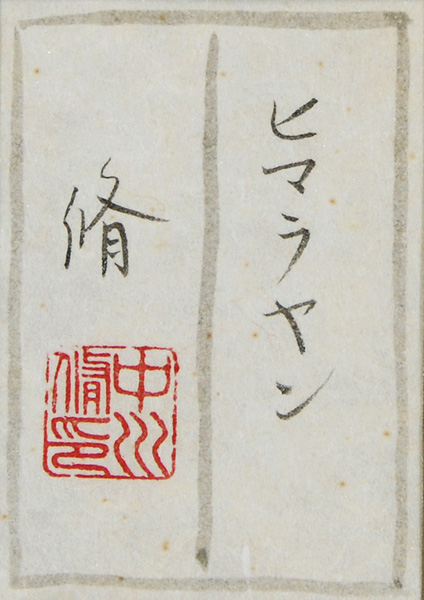 ヒマラヤン
脩
中川
脩印